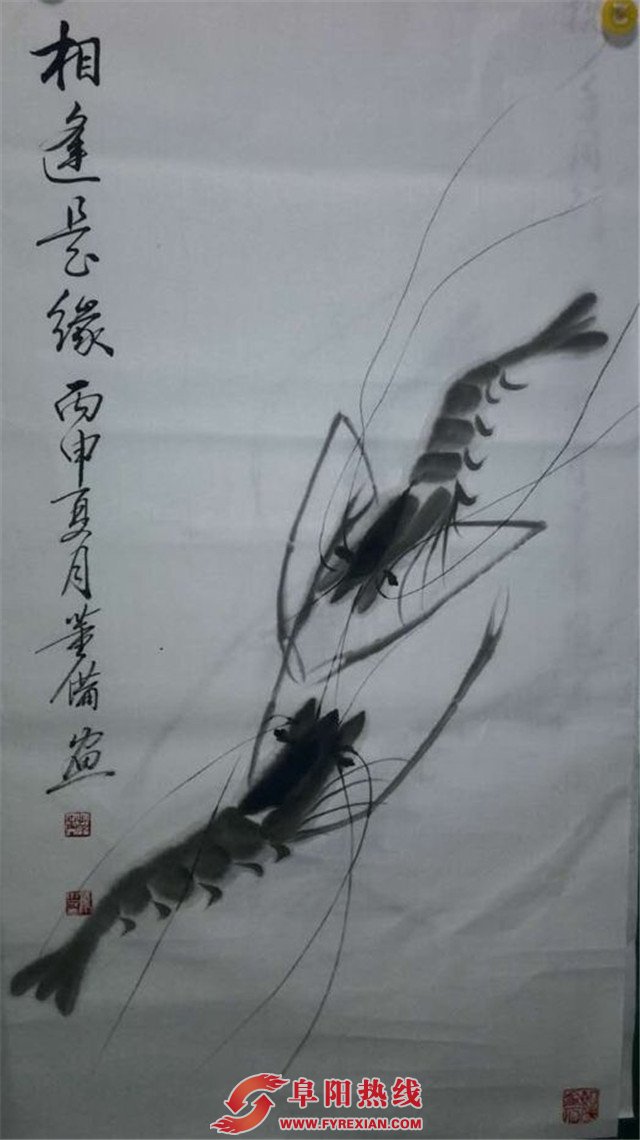 相逢是缘丙申夏月董备画
阜阳热线
WWW.FYREXIAN.COM